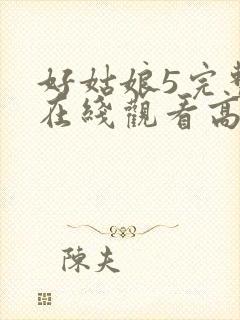 好姑娘5完整
在綫觀看高
陳夫